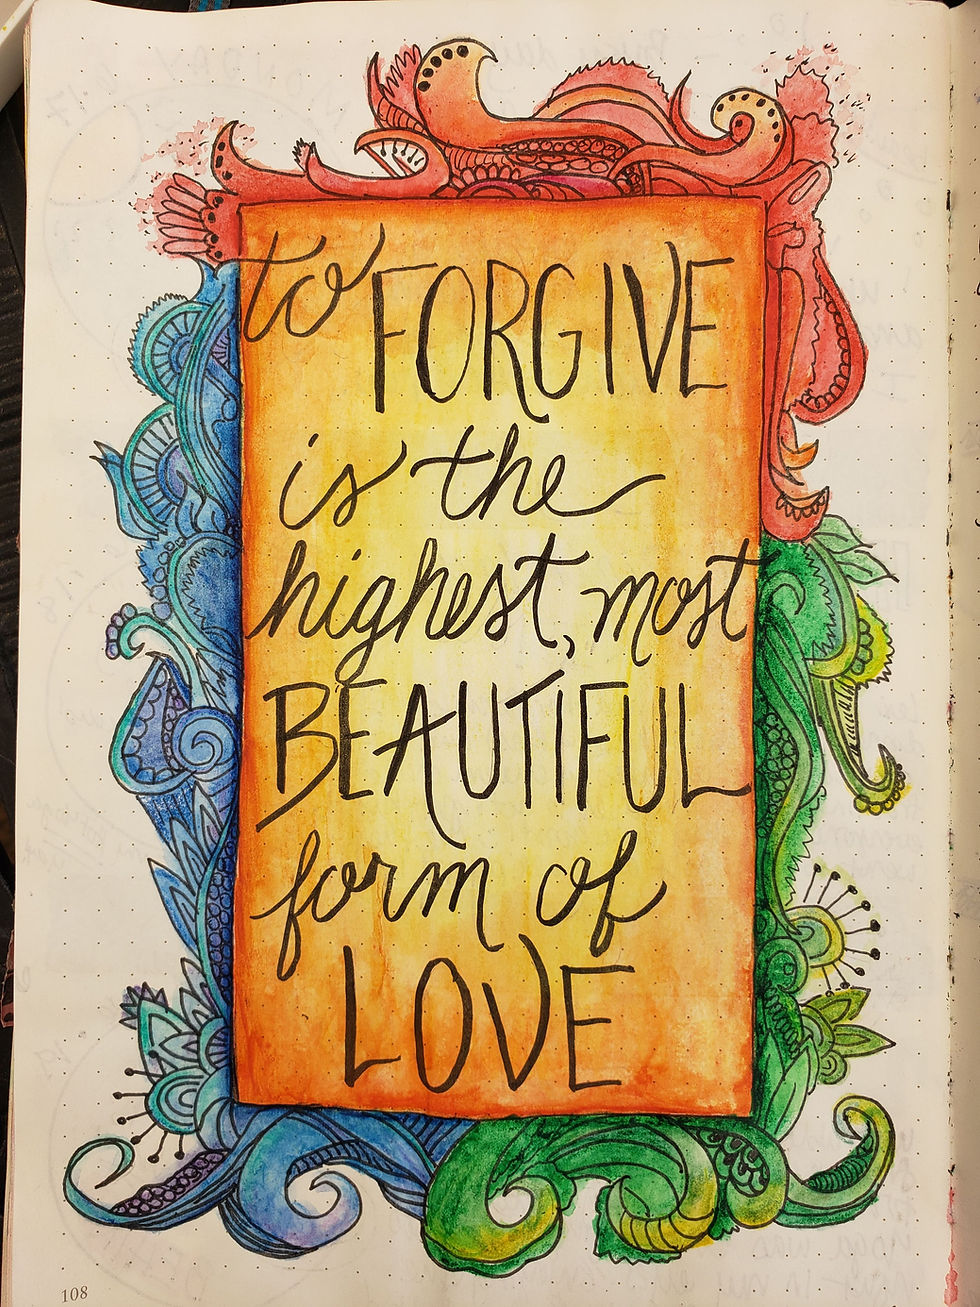 to FORGIVE
is the
highest, most
BEAUTIFUL
form of
LOVE
108